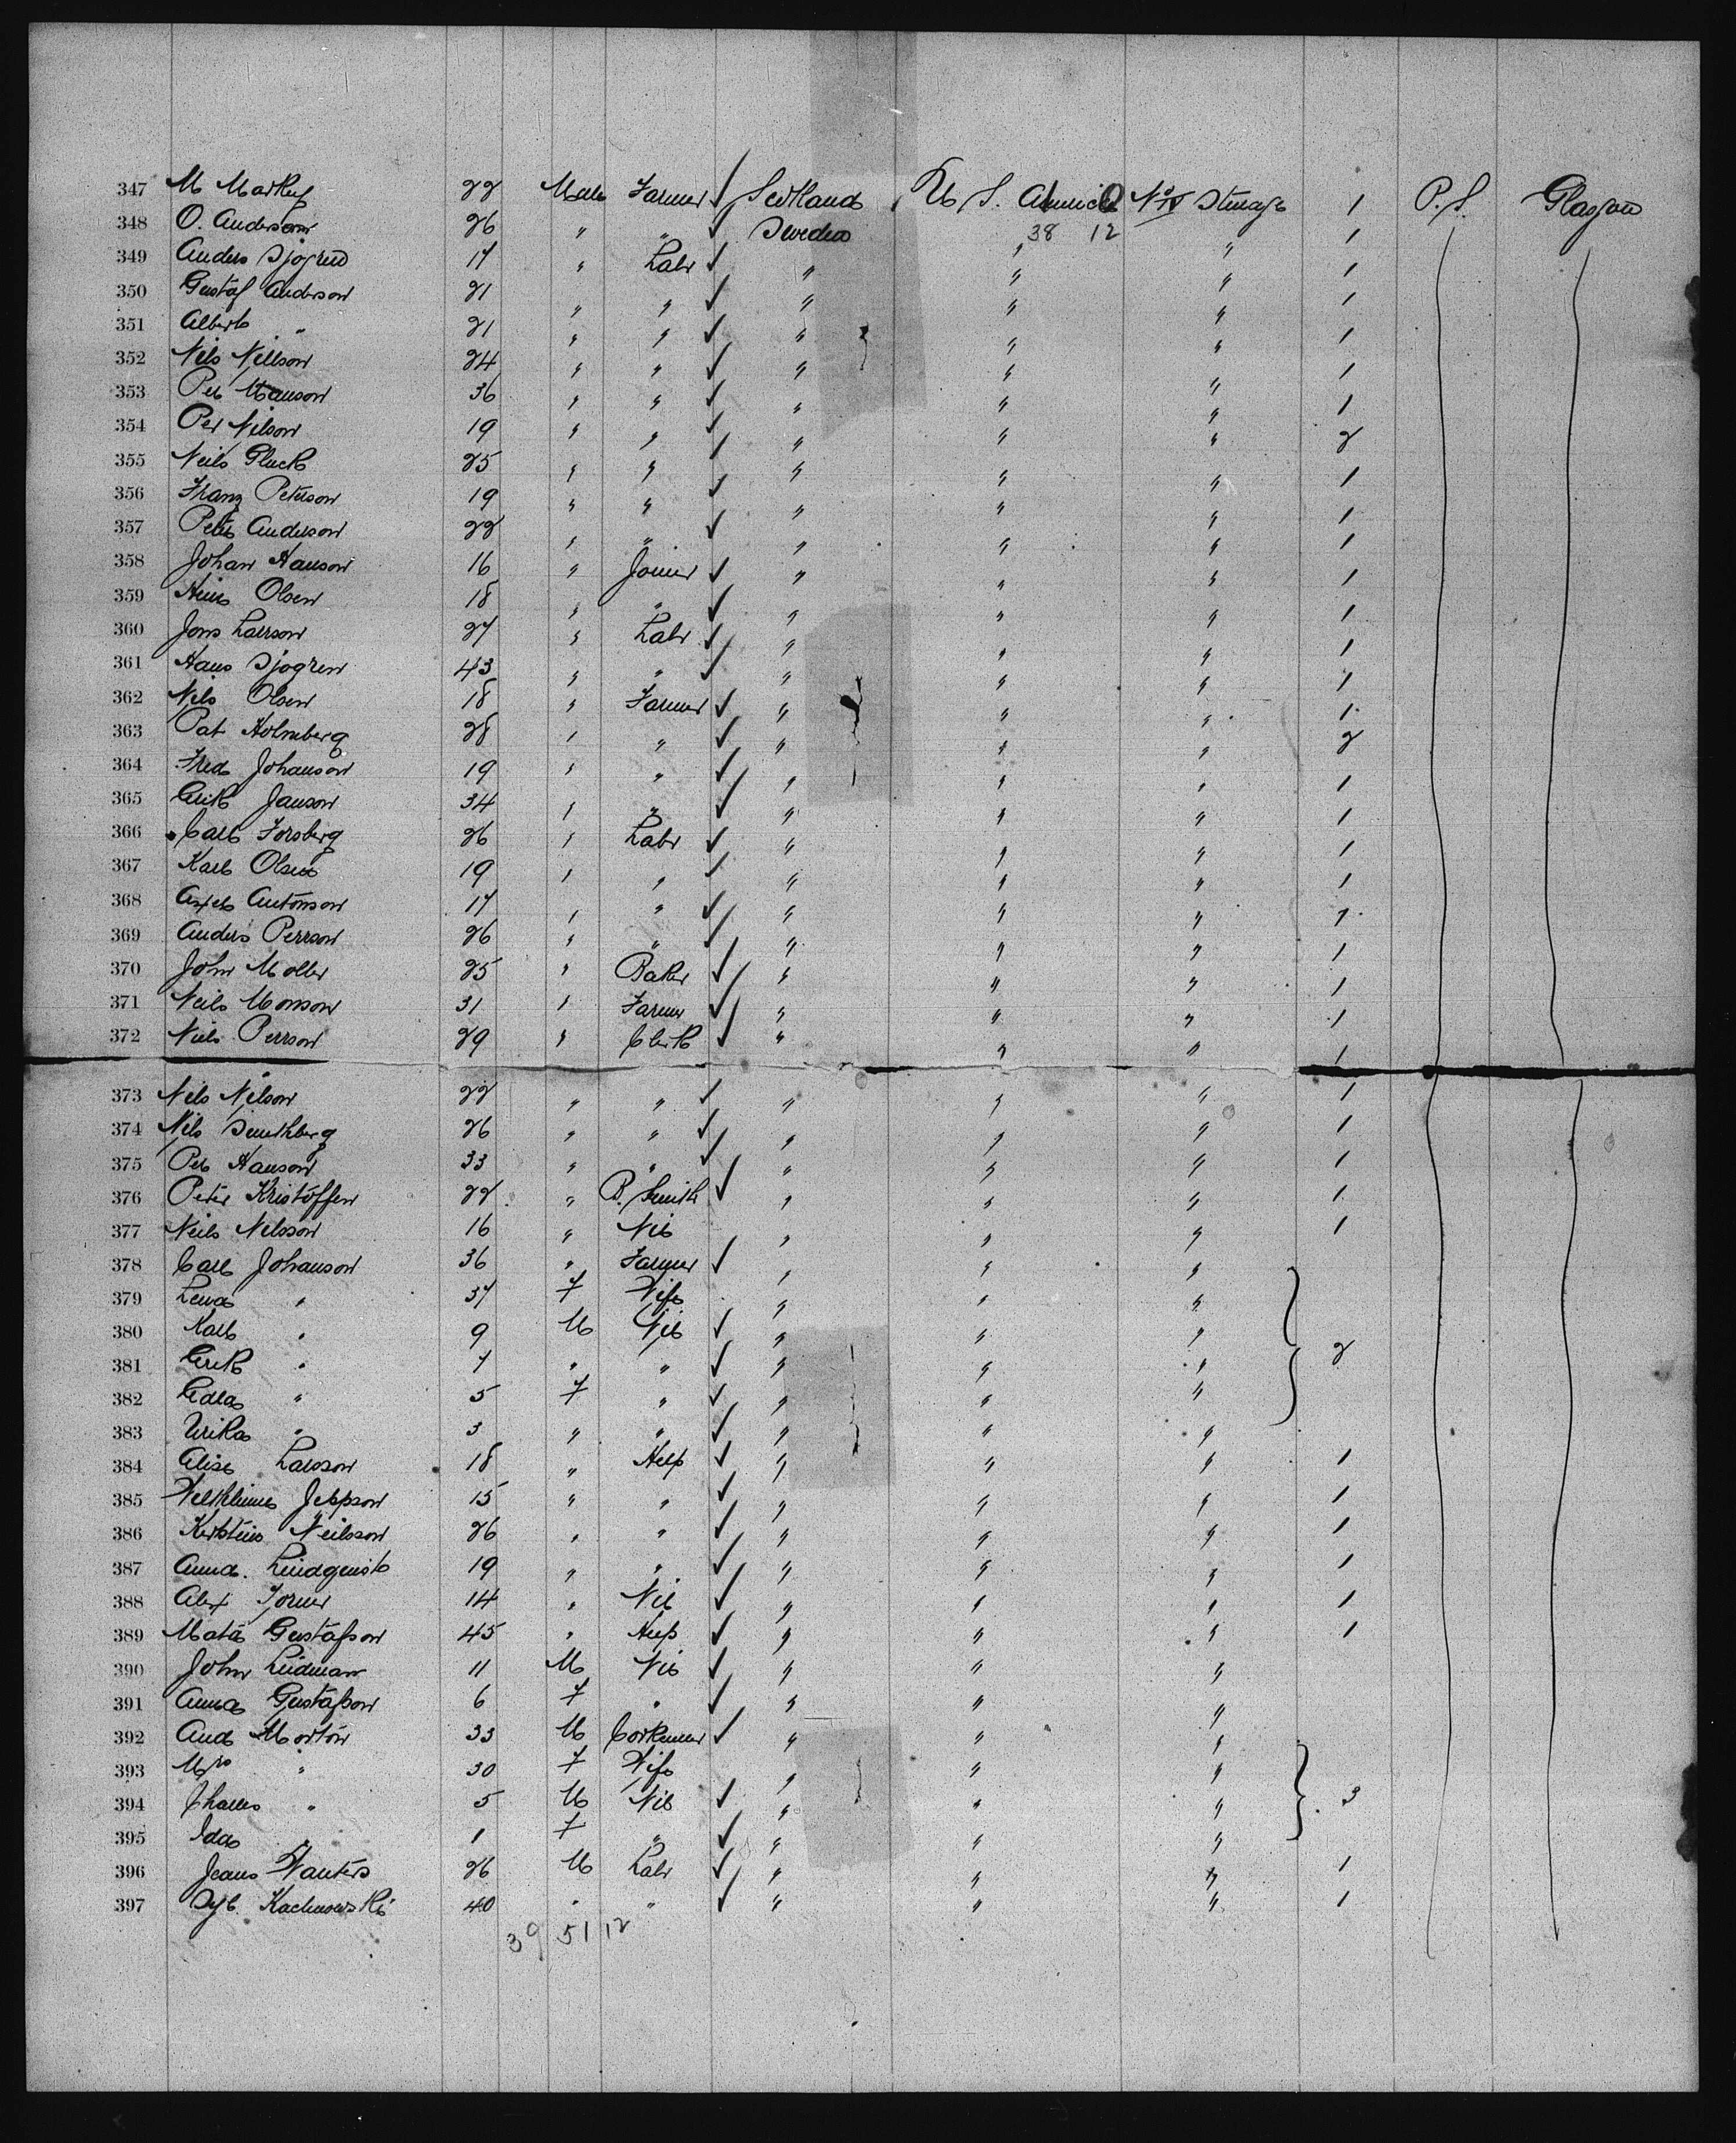 347 M Markey 22 Male Farmer ✓ Scotland U S. America No IV Steerage 1 P.S. Glasgow
348 O. Anderson 26 " " ✓ Sweden " 38 12 " 1
349 Anders Sjogren 17 " Labr ✓ " " " 1
350 Gustaf Anderson 21 " " ✓ " " " 1
351 Albert " 21 " " ✓ " " " 1
352 Nils Nillson 24 " " ✓ " " " 1
353 Per Manson 36 " " ✓ " " " 1
354 Per Nilson 19 " " ✓ " " " 2
355 Neils Gluck 25 " " ✓ " " " 1
356 Franz Peterson 19 " " ✓ " " " 1
357 Peter Anderson 22 " " ✓ " " " 1
358 Johan Hanson 16 " Joiner ✓ " " " 1
359 Olsen 18 " " ✓ " " " 1
360 Jons Larrson 27 " Labr ✓ " " " 1
361 Hans Sjogren 43 " " ✓ " " " 1
362 Nils Olsen 18 " Farmer ✓ " " " 1
363 Pat Holmberg 28 " " ✓ " " " 2
364 Fred Johanson 19 " " ✓ " " " 1
365 Erik Janson 34 " " ✓ " " " 1
366 Carl Forsberg 26 " Labr ✓ " " " 1
367 Karl Olsen 19 " " ✓ " " " 1
368 Axel Antonson 17 " " ✓ " " " 1
369 Anders Perrson 26 " " ✓ " " " 1
370 John Moller 25 " Baker ✓ " " " 1
371 Neils Monson 31 " Farmer ✓ " " " 1
372 Niels Perrson 29 " Clerk ✓ " " " 1
373 Nels Nilson 22 " " ✓ " " " 1
374 Nils 26 " " ✓ " " " 1
375 Per Hanson 33 " " ✓ " " " 1
376 Peter Kristoffen 22 " B. Smith ✓ " " " 1
377 Neils Nelsson 16 " Nil " " " 1
378 Carl Johanson 36 " Farmer ✓ " " "
379 Lena " 37 F Wife " " "
380 Karl " 9 M Nil ✓ " " "
381 Erik " 7 " " ✓ " " " 2
382 Edla " 5 F " ✓ " " "
383 Ulrika " 3 " " ✓ " " "
384 Alise Larsson 18 " Help ✓ " " " 1
385 Jeppson 15 " " ✓ " " " 1
386 Kerstina Neilsson 26 " " ✓ " " " 1
387 Anna. Lindquist 19 " " ✓ " " " 1
388 Alex 14 " Nil ✓ " " " 1
389 Mata Gustafson 45 " Help ✓ " " " 1
390 John Lidman 11 M Nil ✓ " " "
391 Anna Gustafson 6 F " ✓ " " "
392 And Morton 33 M ✓ " " "
393 Mrs " 30 F Wife " " "
394 Charles " 5 M Nil ✓ " " " 3
395 Ida " 1 F " ✓ " " "
396 Jeans Wauters 26 M Labr ✓ " " " 1
397 Kachnowski 40 " " ✓ " " " 1
39 51 12